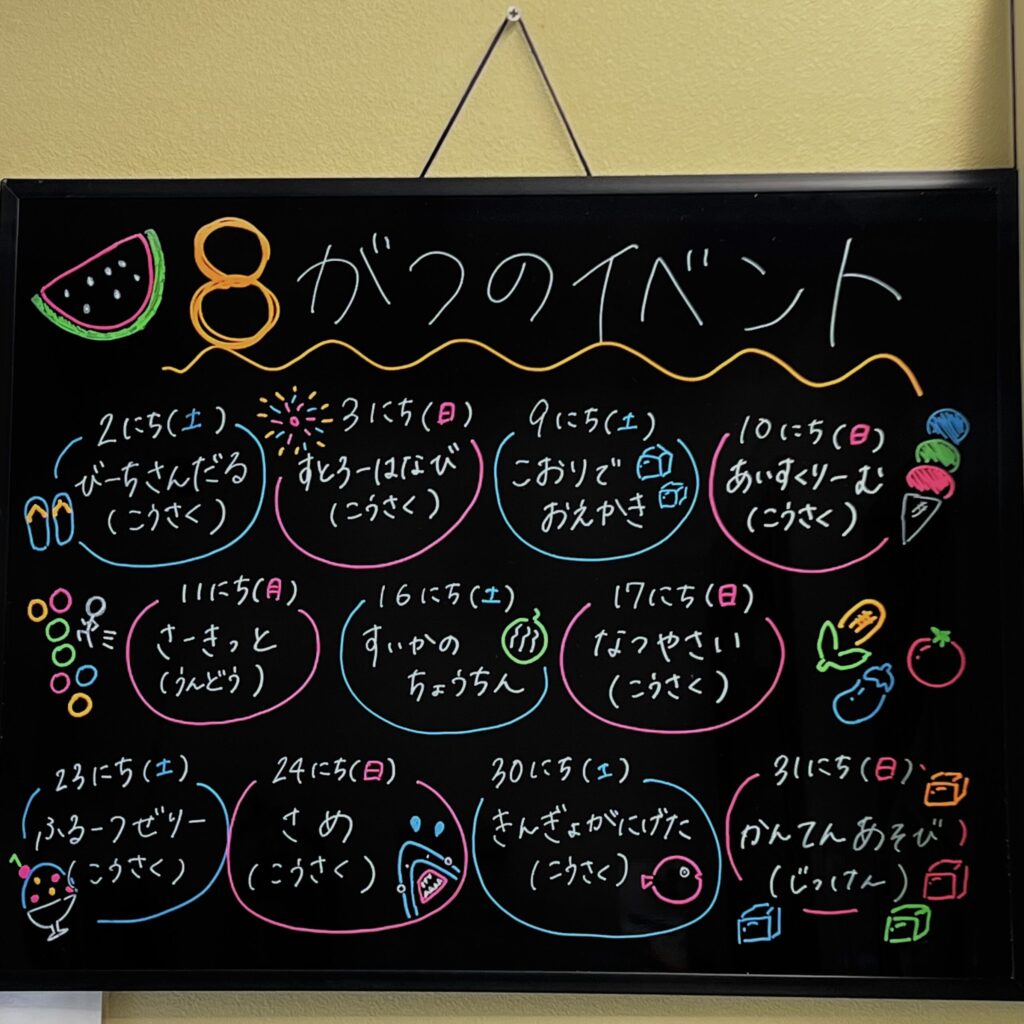 8がつのイベント
2にち(土)
びーちさんだる
(こうさく)
3にち(日)
すとろーはなび
(こうさく)
9にち(土)
こおりで
おえかき
10にち(日)
あいすくりーむ
(こうさく)
11にち(月)
さーきっと
(うんどう)
16にち(土)
すいかの
ちょうちん
17にち(日)
なつやさい
(こうさく)
23にち(土)
ふるーつぜりー
(こうさく)
24にち(日)
さめ
(こうさく)
30にち(土)
きんぎょがにげた
(こうさく)
31にち(日)
かんてんあそび
(じっけん)